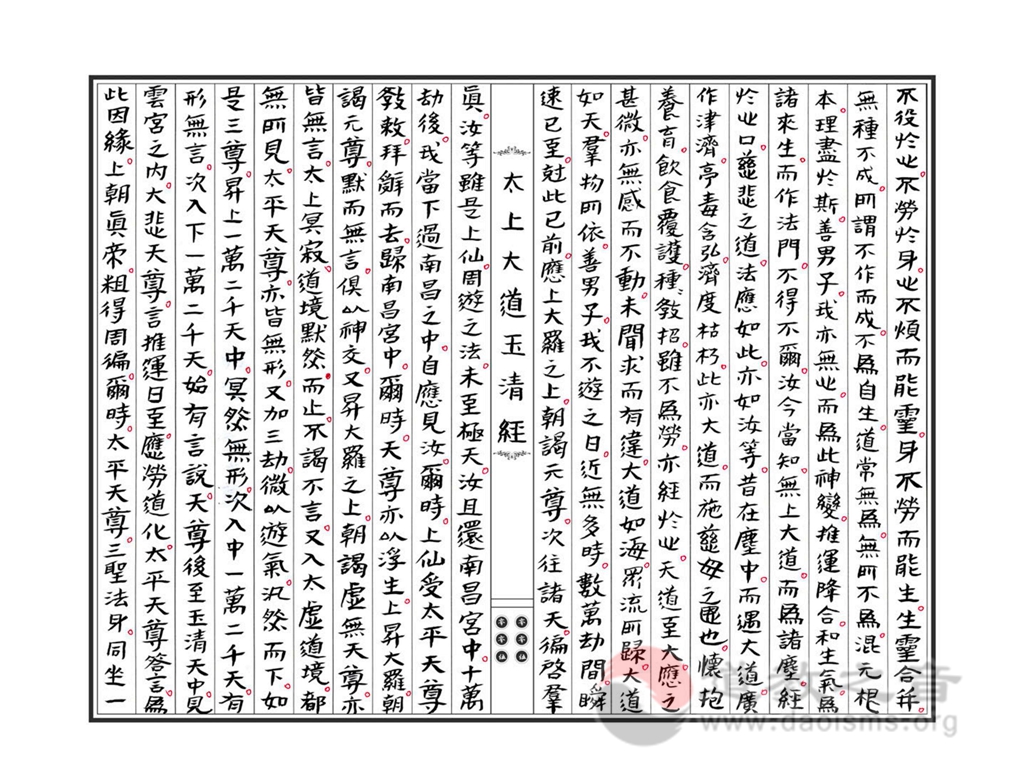 不役於心。不勞於身。心不煩而能靈。身不勞而能生。生靈合并。
無種不成。所謂不作而成。不為自生。道常無為。無所不為。混元根
本。理盡於斯。善男子。我亦無心。而為此神變。推運降合。和生氣。為
諸來生。而作法門。不得不爾。汝今當知。無上大道。而為諸塵。經
於心口。慈悲之道。法應如此。亦如汝等。昔在塵中。而遇大道。廣
作津濟。亭毒含弘。濟度枯朽。此亦大道。而施慈母之匪也。懷抱
養育。飲食覆護。種種教招。雖不為勞。亦經於心。天道至大。應之
甚微。亦無感而不動。未聞求而有違。大道如海。眾流所歸。大道
如天。羣物所依。善男子。我不遊之日。近無多時。數萬劫間。瞬
速已至。尅此已前。應上大羅之上。朝謁元尊。次往諸天。徧啓羣
太上大道玉清經
真。汝等雖是上仙。周遊之法。未至極天。汝且還南昌宮中。十萬
劫後。我當下過南昌之中。自應見汝。爾時。上仙受太平天尊
教敕。拜辭而去。歸南昌宮中。爾時。天尊亦以浮生。上昇大羅。朝
謁元尊。默而無言。俱以神交。又昇大羅之上。朝謁虛無天尊。亦
皆無言。太上冥寂。道境默然。而止。不謁不言。又入太虛道境。都
無所見。太平天尊。亦皆無形。又加三劫。微以遊氣。汎然而下。如
是三尊。昇上一萬二千天中。冥然無形。次入中一萬二千天。有
形無言。次入下一萬二千天。始有言說。天尊後至玉清天中。見
雲宮之內。大悲天尊。言推運日至。應勞道化。太平天尊答言。為
此因緣。上朝真帝。粗得周徧。爾時。太平天尊。三聖法身。同坐一
道教之音
www.daoisms.org